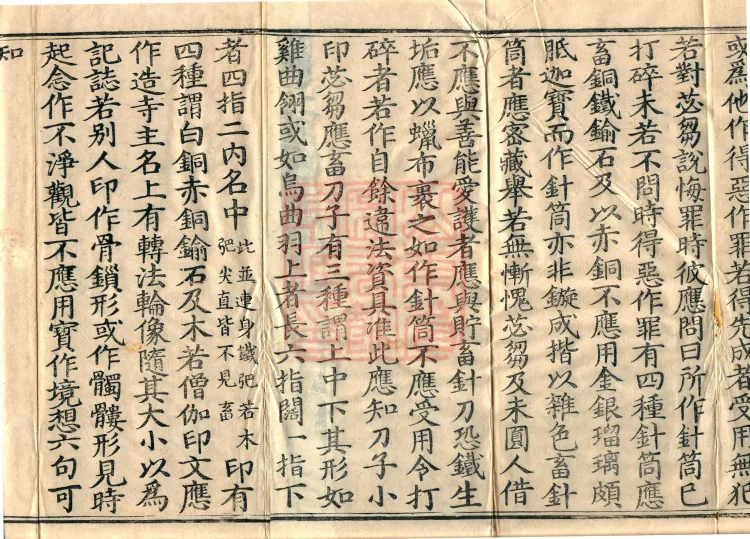 或爲他作得惡作罪若得先成者受用無犯
若對苾芻說悔罪時彼應問曰所作針筒已
打碎未若不問時得惡作罪有四種針筒應
畜銅鐵鍮石及以赤銅不應用金銀瑠璃頗
胝迦寶而作針筒亦非鏇成揩以雜色畜針
筒者應密藏舉若無慚愧苾芻及未圓人借
不應與善能愛護者應與貯畜針刀恐鐵生
垢應以蠟布裹之如作針筒不應受用令打
碎者若作自餘違法資具准此應知刀子小
印苾芻應畜刀子有三種謂上中下其形如
雞曲翎或如烏曲羽上者長六指闊一指下
者四指二內名中此並連身鐵𨥨若木
𨥨尖直皆不見畜印有
四種謂白銅赤銅鍮石及木若僧伽印文應
作造寺主名上有轉法輪像隨其大小以爲
記誌若別人印作骨鎖形或作髑髏形見時
起念作不淨觀皆不應用寶作境想六句可
知